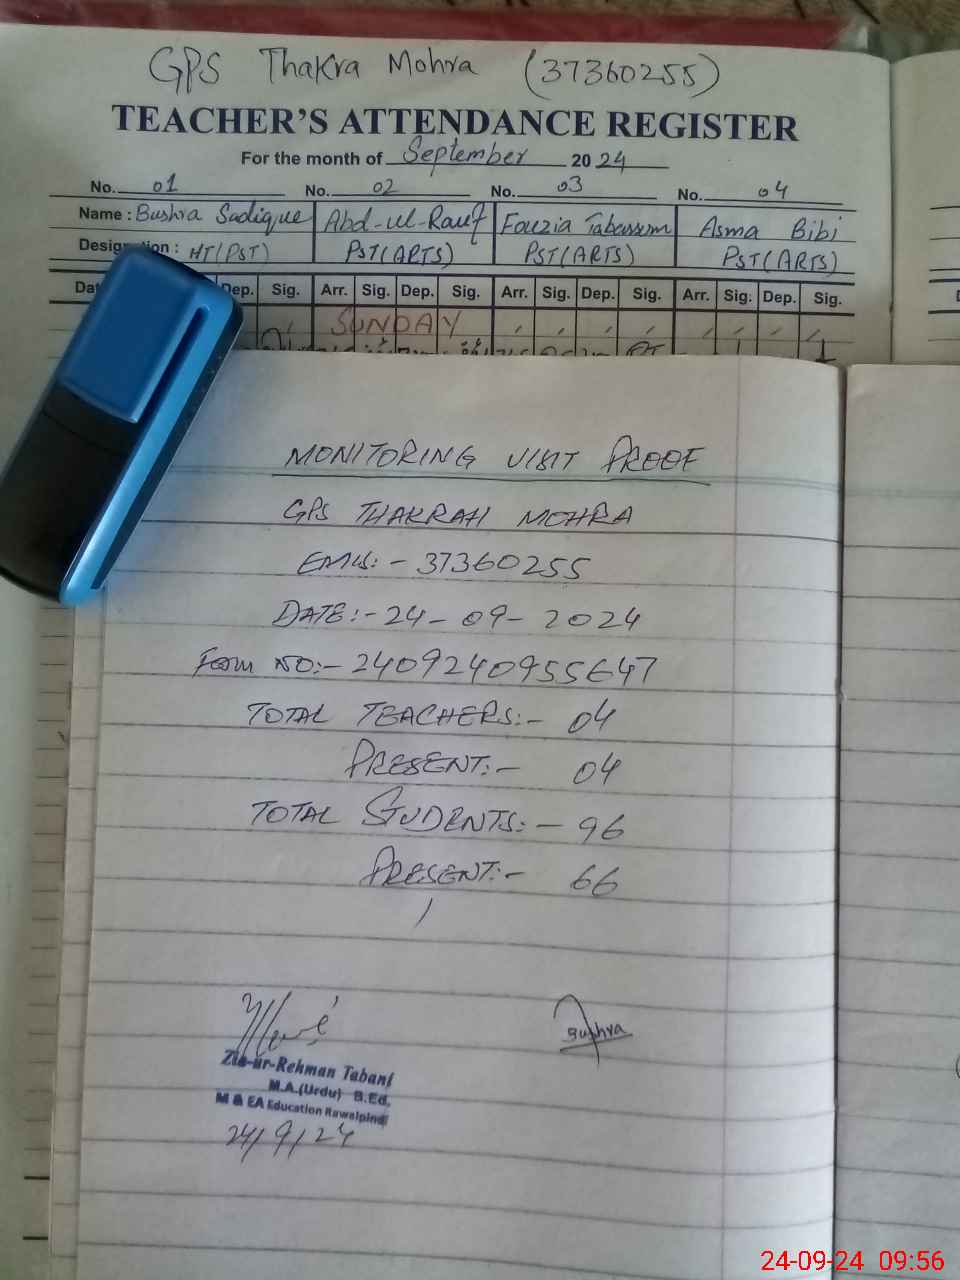 GPS Thakra Mohra (37360255)
TEACHER'S ATTENDANCE REGISTER
For the month of September 2024
No. 01 No. 02 No. 03 No. 04
Name : Bushra Sadique Abd-ul-Rauf Fouzia Tabassum Asma Bibi
Designation : HT(PST) PST(ARTS) PST(ARTS) PST(ARTS)
Dep. Sig. Arr. Sig. Dep. Sig. Arr. Sig. Dep. Sig. Arr. Sig. Dep. Sig.
SUNDAY
MONITORING VISIT PROOF
GPS THAKRAH MOHRA
EMIS:- 37360255
DATE:- 24-09-2024
Form NO:- 2409240955647
TOTAL TEACHERS:- 04
PRESENT:- 04
TOTAL STUDENTS:- 96
PRESENT:- 66
Bushra
Zia-ur-Rehman Tabani
M.A.(Urdu) B.Ed.
M & EA Education Rawalpindi
24/9/24
24-09-24 09:56